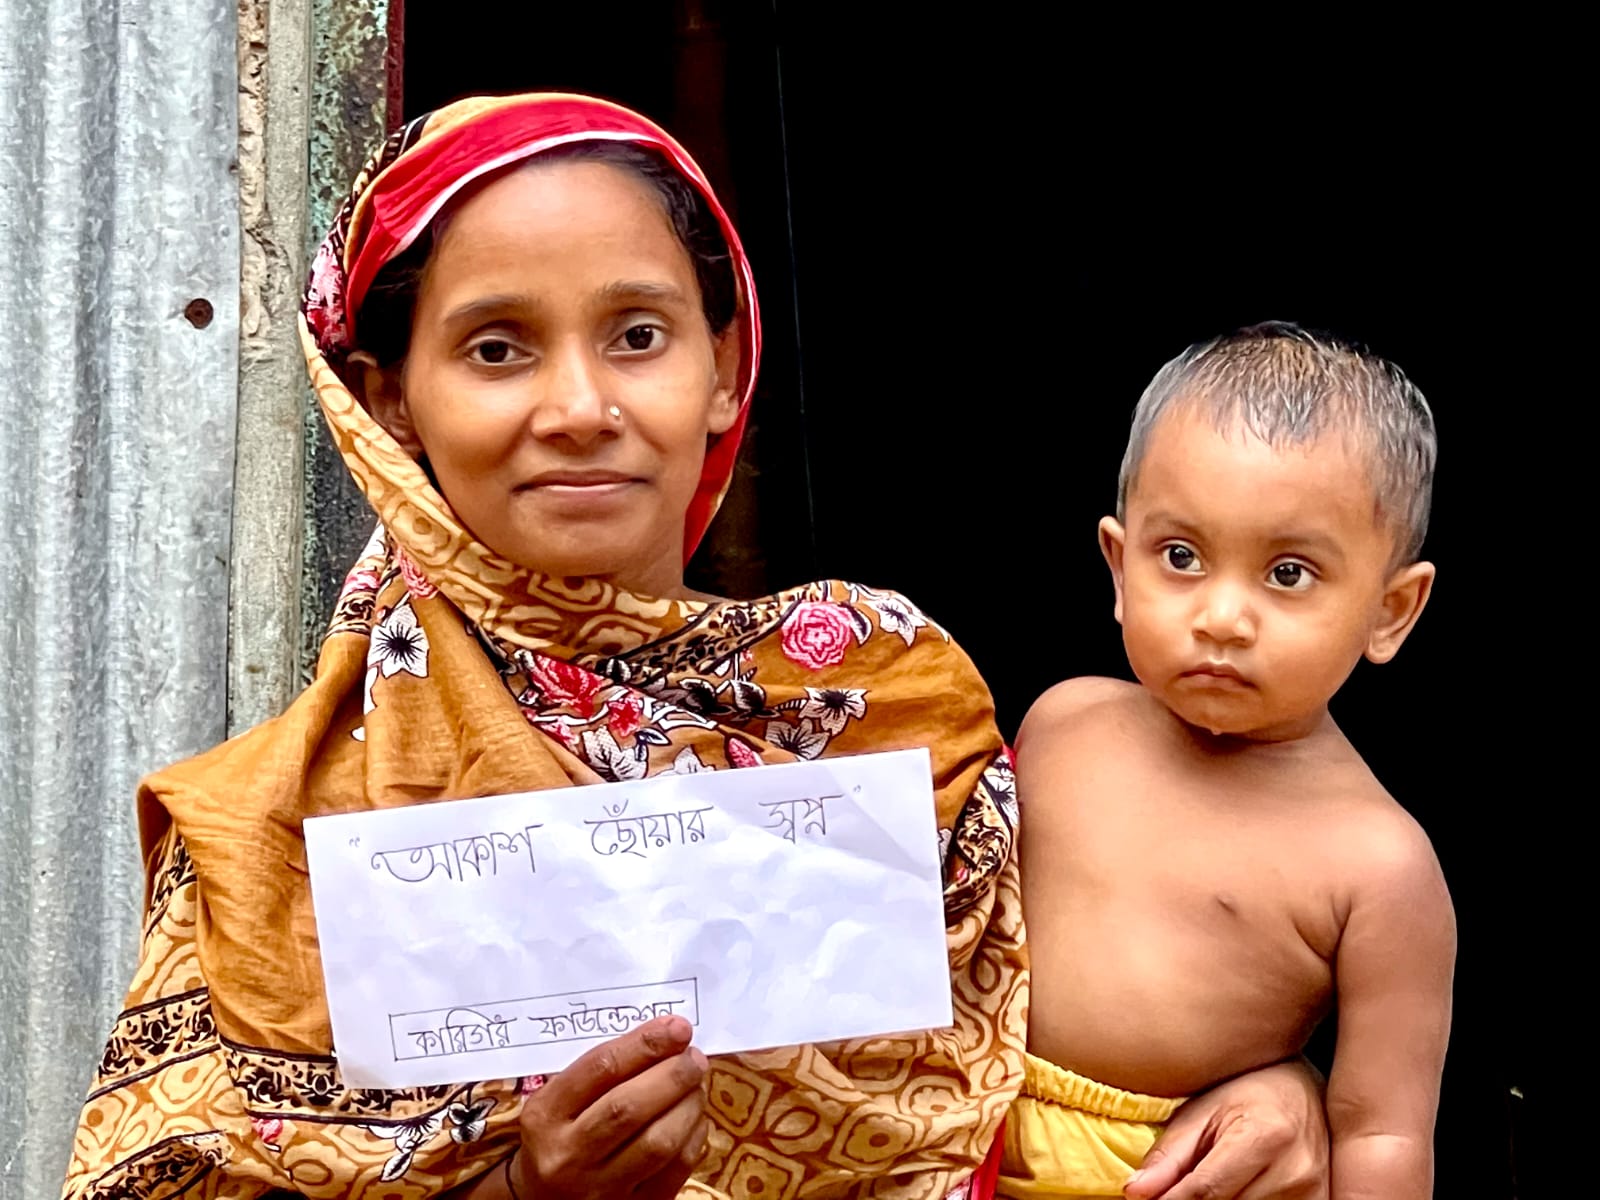 "আকাশ ছোঁয়ার স্বপ্ন"
কারিগর ফাউন্ডেশন